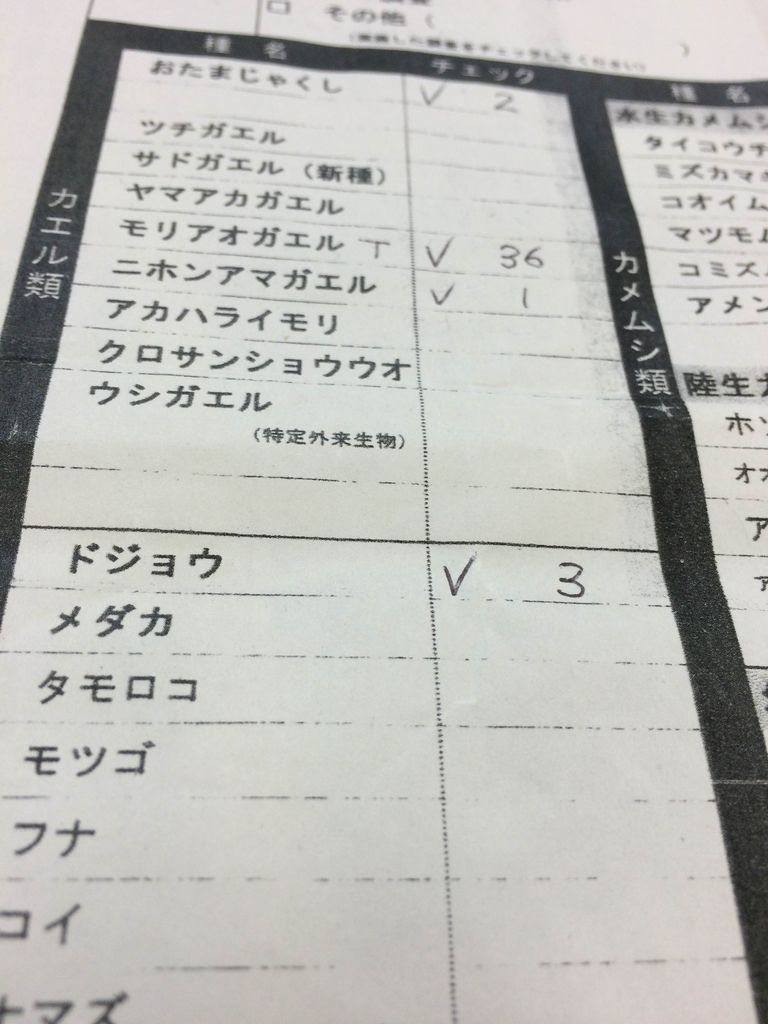 □ その他（
）
種 名 チェック
おたまじゃくし ✓ 2
ツチガエル
サドガエル（新種）
ヤマアカガエル
モリアオガエル T ✓ 36
ニホンアマガエル ✓ 1
アカハライモリ
クロサンショウウオ
ウシガエル
（特定外来生物）
カエル類
ドジョウ ✓ 3
メダカ
タモロコ
モツゴ
フナ
コイ
ナマズ
種 名
水生カメムシ
タイコウチ
ミズカマ
コオイム
マツモム
コミズ
アメン
カメムシ類
陸生カ
ホソ
オオ
ア
ア